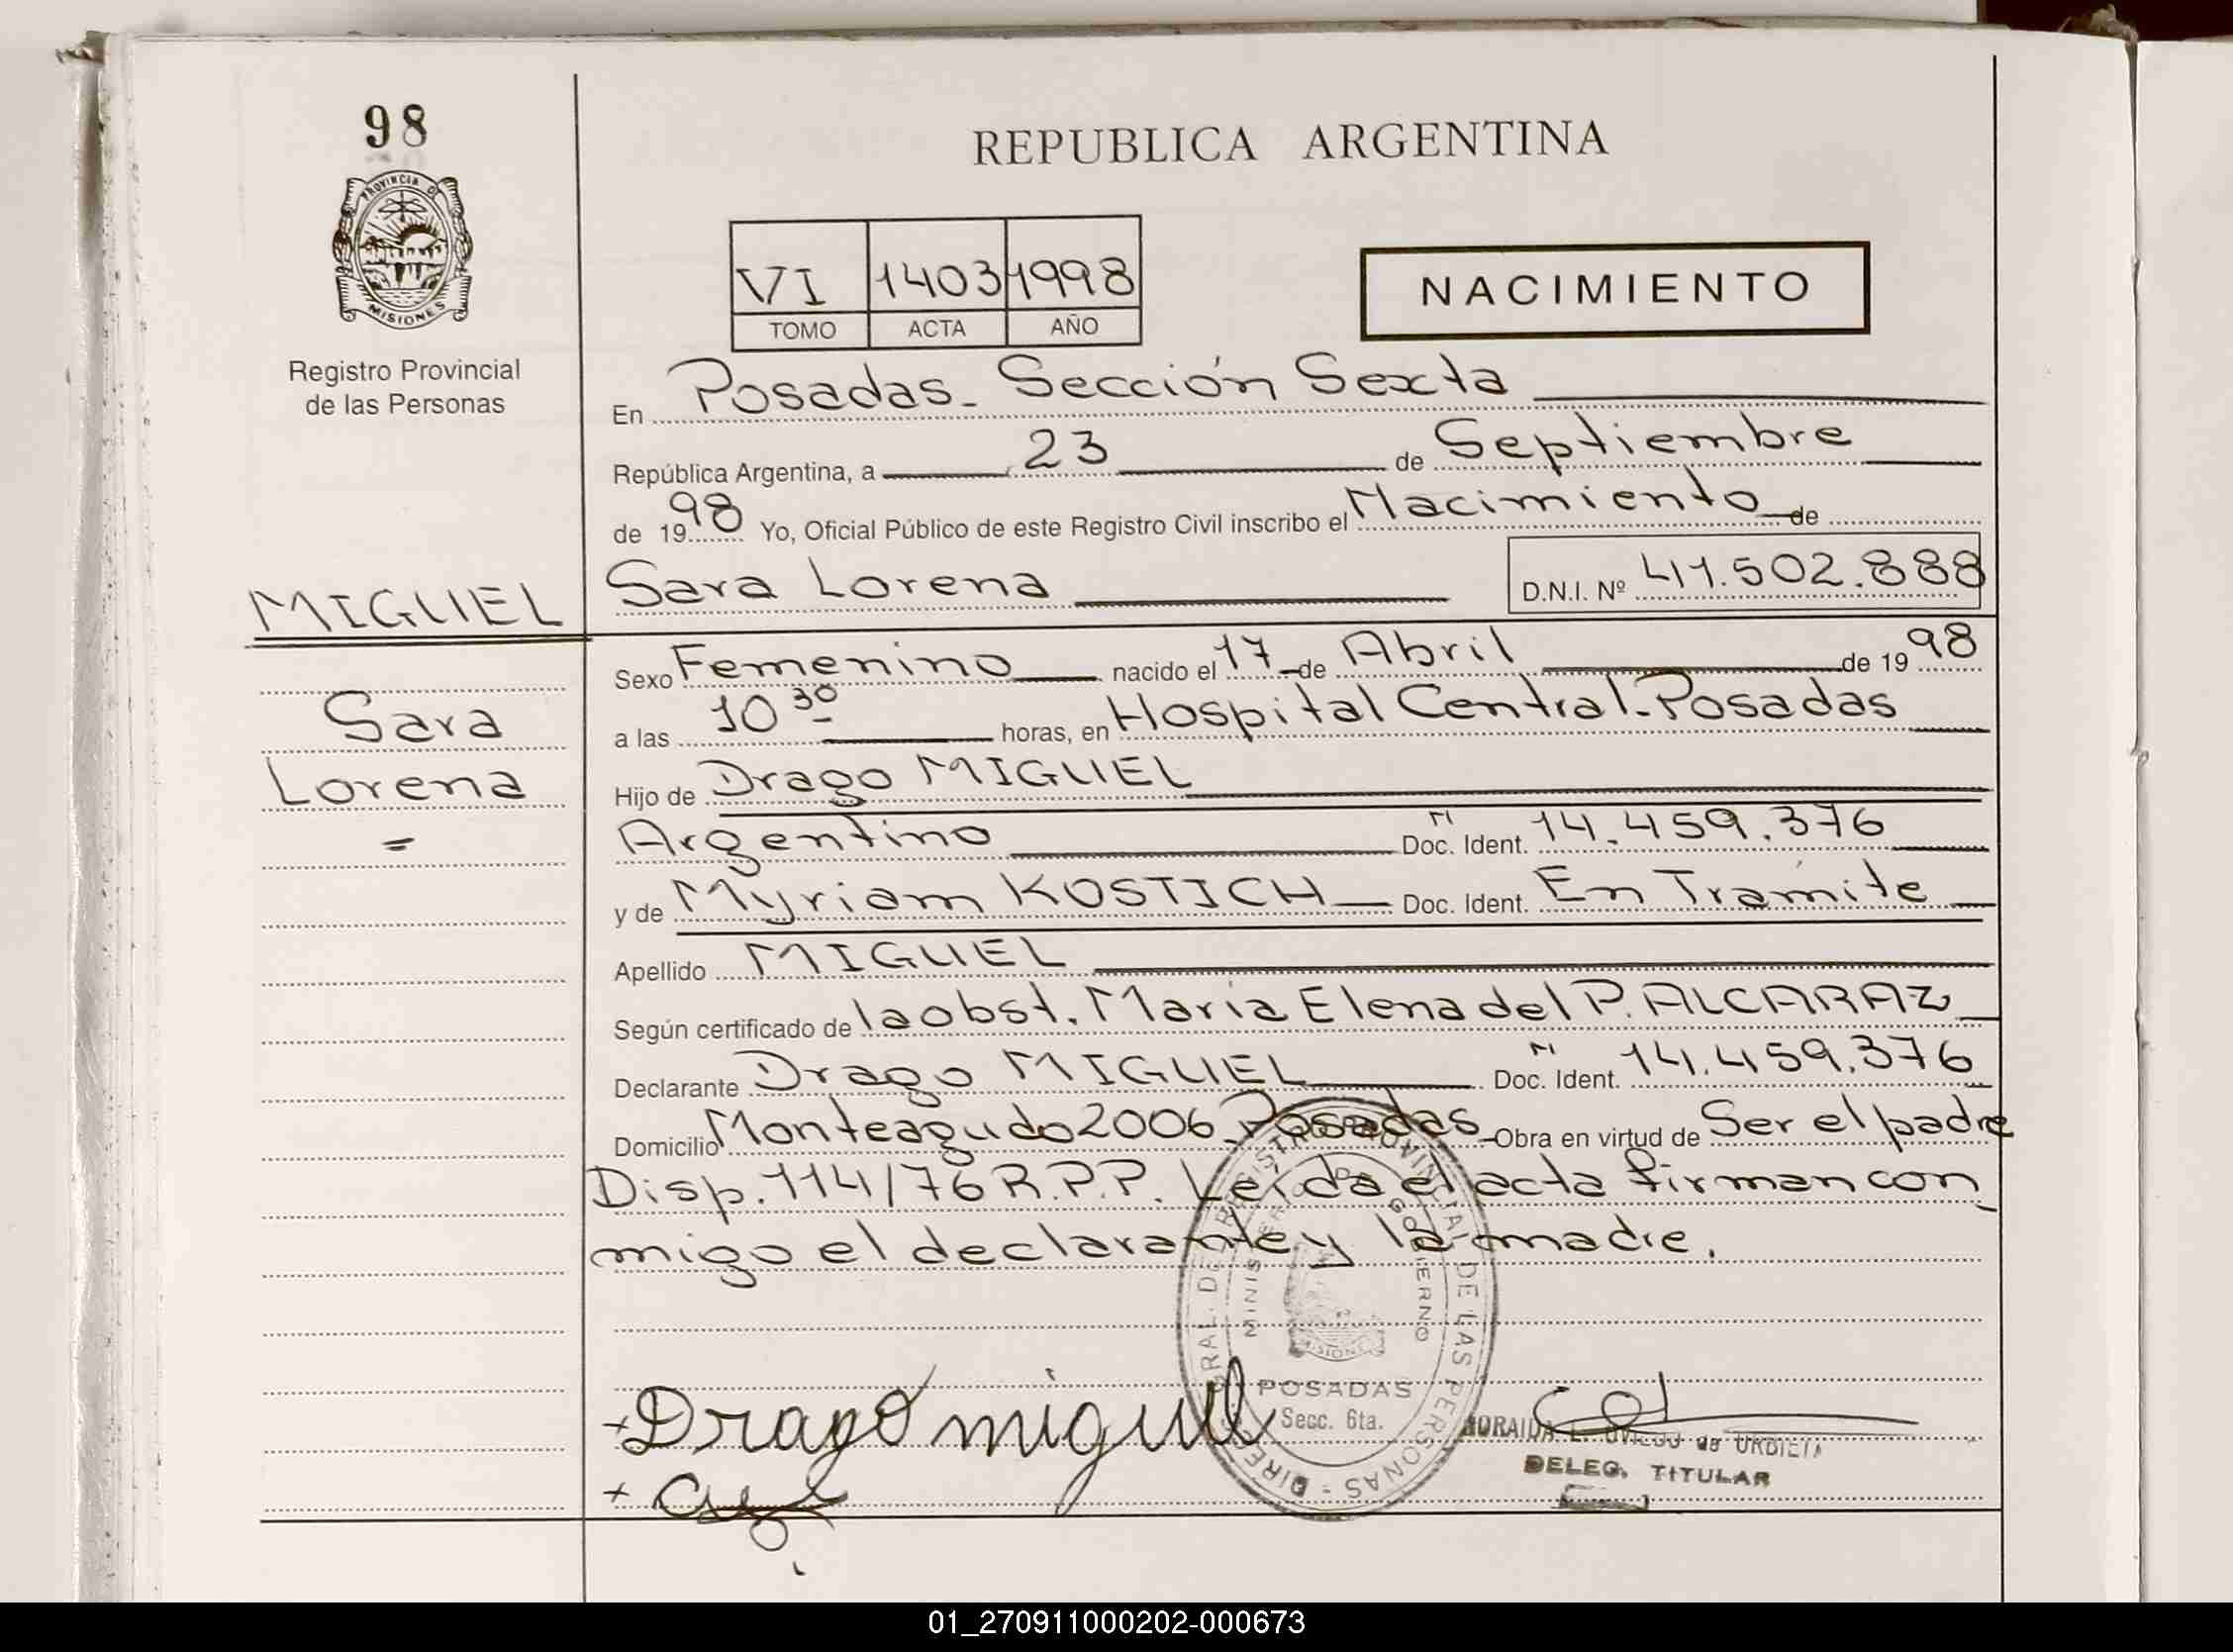 98
PROVINCIA DE
MISIONES
Registro Provincial
de las Personas
REPUBLICA ARGENTINA
VI 1403 1998
TOMO ACTA AÑO
NACIMIENTO
En Posadas - Sección Sexta
República Argentina, a 23 de Septiembre
de 1998 Yo, Oficial Público de este Registro Civil inscribo el Nacimiento de
MIGUEL
Sara
Lorena
=
Sara Lorena D.N.I. Nº 41.502.888
Sexo Femenino nacido el 17 de Abril de 1998
a las 10 30 horas, en Hospital Central - Posadas
Hijo de Drago MIGUEL
Argentino Doc. Ident. 14.459.376
y de Myriam KOSTICH Doc. Ident. En Trámite
Apellido MIGUEL
Según certificado de la obst. María Elena del P. ALCARAZ
Declarante Drago MIGUEL Doc. Ident. 14.459.376
Domicilio Monteagudo 2006 - Posadas Obra en virtud de Ser el padre
Disp. 114/76 R.P.P. Leída el acta firman con
migo el declarante y la madre.
DIRECC. GRAL. DEL REGISTRO PROVINCIAL DE LAS PERSONAS -
MINISTERIO DE GOBIERNO
MISIONES
POSADAS
Secc. 6ta.
+ Drago miguel
+
OVIEDO de URBIETA
DELEG. TITULAR
01_270911000202-000673